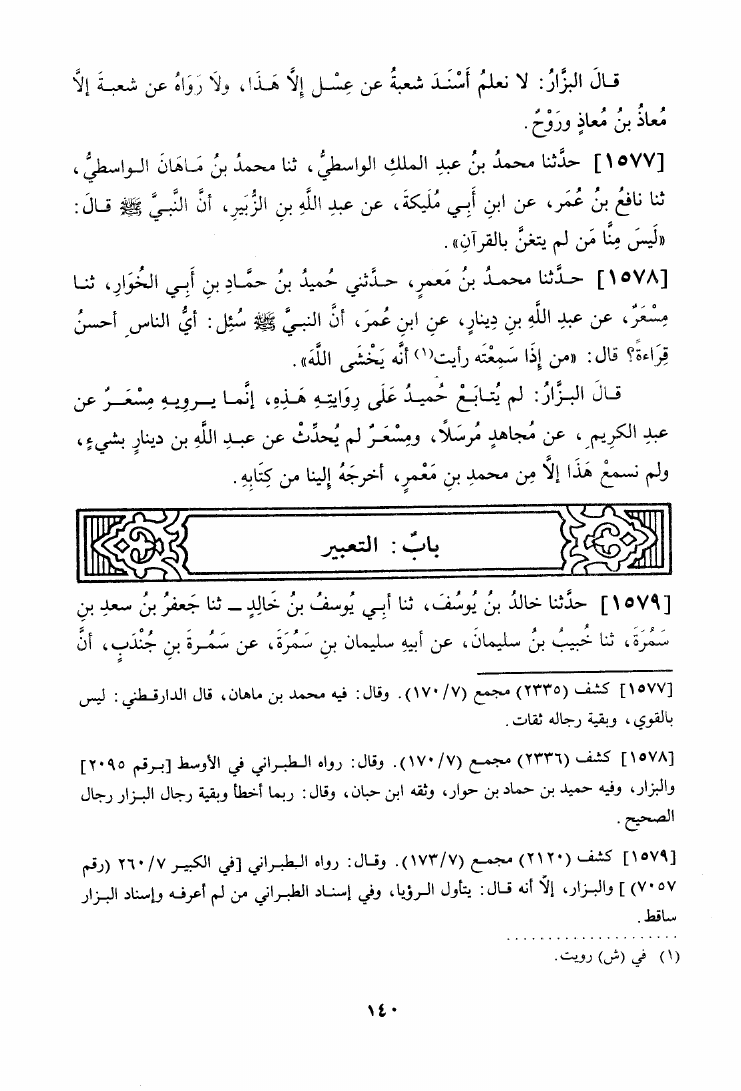 قـالَ البزَّارُ: لا نعلمُ أَسْنَـدَ شعبةُ عن عِسْـل إِلَّا هَـذَا، ولَا رَوَاهُ عن شعبـةَ إلَّا
مُعاذُ بنُ مُعاذٍ ورَوْحٌ.
[١٥٧٧] حدَّثنا محمدُ بنُ عبدِ الملكِ الواسطيُّ، ثنا محمدُ بنُ مَـاهَانَ الـواسطيُّ،
ثنا نافعُ بنُ عُمَر، عن ابنِ أَبِـي مُلَيكةَ، عن عبدِ اللَّهِ بنِ الزُّبَيرِ، أنَّ النَّبـيَّ ﷺ قـالَ:
«لَيسَ مِنَّا مَن لم يتغنَّ بالقرآنِ».
[١٥٧٨] حـدَّثنا محمـدُ بنُ مَعمرٍ، حـدَّثني حُميدُ بنُ حمَّـادِ بنِ أَبِـي الخُوَارِ، ثنـا
مِسْعَرٌ، عن عبدِ اللَّهِ بنِ دِينارٍ، عنِ ابنِ عُمَرَ، أنَّ النبـيَّ ﷺ سُئِل: أيُّ الناسِ أحسنُ
قِرَاءةً؟ قال: «من إذَا سَمِعْتَه رأيت(١) أنَّه يَخْشَى اللَّهَ».
قـالَ البـزَّارُ: لم يُتـابَـعْ حُميدُ عَلَى رِوَايتِـهِ هَـذِهِ، إنَّمـا يــرويـهِ مِسْعَــرٌ عن
عبدِ الكريمِ، عن مُجاهدٍ مُرسَلًا، ومِسْعَـرٌ لم يُحدِّثْ عن عبـدِ اللَّهِ بن دينارٍ بشيءٍ،
ولم نسمعْ هَذَا إلَّا مِن محمدِ بنِ مَعْمرٍ، أخرجَهُ إلينا من كِتَابِهِ.
بابٌ: التعبير
[١٥٧٩] حدَّثنا خالدُ بنُ يُوسُفَ، ثنا أبـي يُوسفُ بنُ خَالِدٍ ــ ثنا جَعفرُ بنُ سعدِ بنِ
سَمُرَةَ، ثنا خُبيبُ بنُ سليمانَ، عن أبيهِ سليمان بنِ سَمُرَةَ، عن سَمُـرةَ بنِ جُنْدَبٍ، أنَّ
[١٥٧٧] كشف (٢٣٣٥) مجمع (١٧٠/٧). وقال: فيه محمد بن ماهان، قال الدارقـطني: ليس
بالقوي، وبقية رجاله ثقات.
[١٥٧٨] كشف (٢٣٣٦) مجمـع (١٧٠/٧). وقال: رواه الـطبـراني في الأوسط [بـرقم ٢٠٩٥]
والبزار، وفيه حميد بن حماد بن حوار، وثقه ابن حبان، وقال: ربما أخطأ وبقية رجال البـزار رجال
الصحيح.
[١٥٧٩] كشف (٢١٢٠) مجمـع (١٧٣/٧). وقـال: رواه الـطبراني [في الكبيـر ٢٦٠/٧ (رقم
٧٠٥٧)] والبـزار، إلَّا أنه قـال: يتأول الـرؤيا، وفي إسنـاد الطبراني من لم أعرفـه وإسناد البـزار
ساقط.
(١) في (ش) رويت.
١٤٠